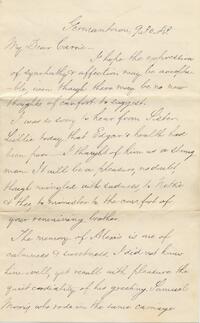 Germantown,
My Dear Carrie -
I hope the expression
of sympathy & affection may be accepta-
ble, even though there may be no new
thoughts of comfort to suggest.
I was so sorry to hear from Sister
today, that Edgar's health had
been poor - I thought of him as a strong
man. It will be a pleasure, no doubt,
though mingled with sadness, to
& thee to minister to the comfort of
your remaining brother.
The memory of is one of
calmness & sweetness. I did not know
him well, yet recall with pleasure the
quiet cordiality of his greeting. Samuel
Morris who rode in the same carriage